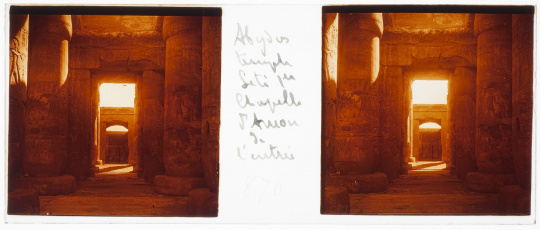 Abydos
temple
Seti 1er
Chapelle
d'Amon
de
l'entrée